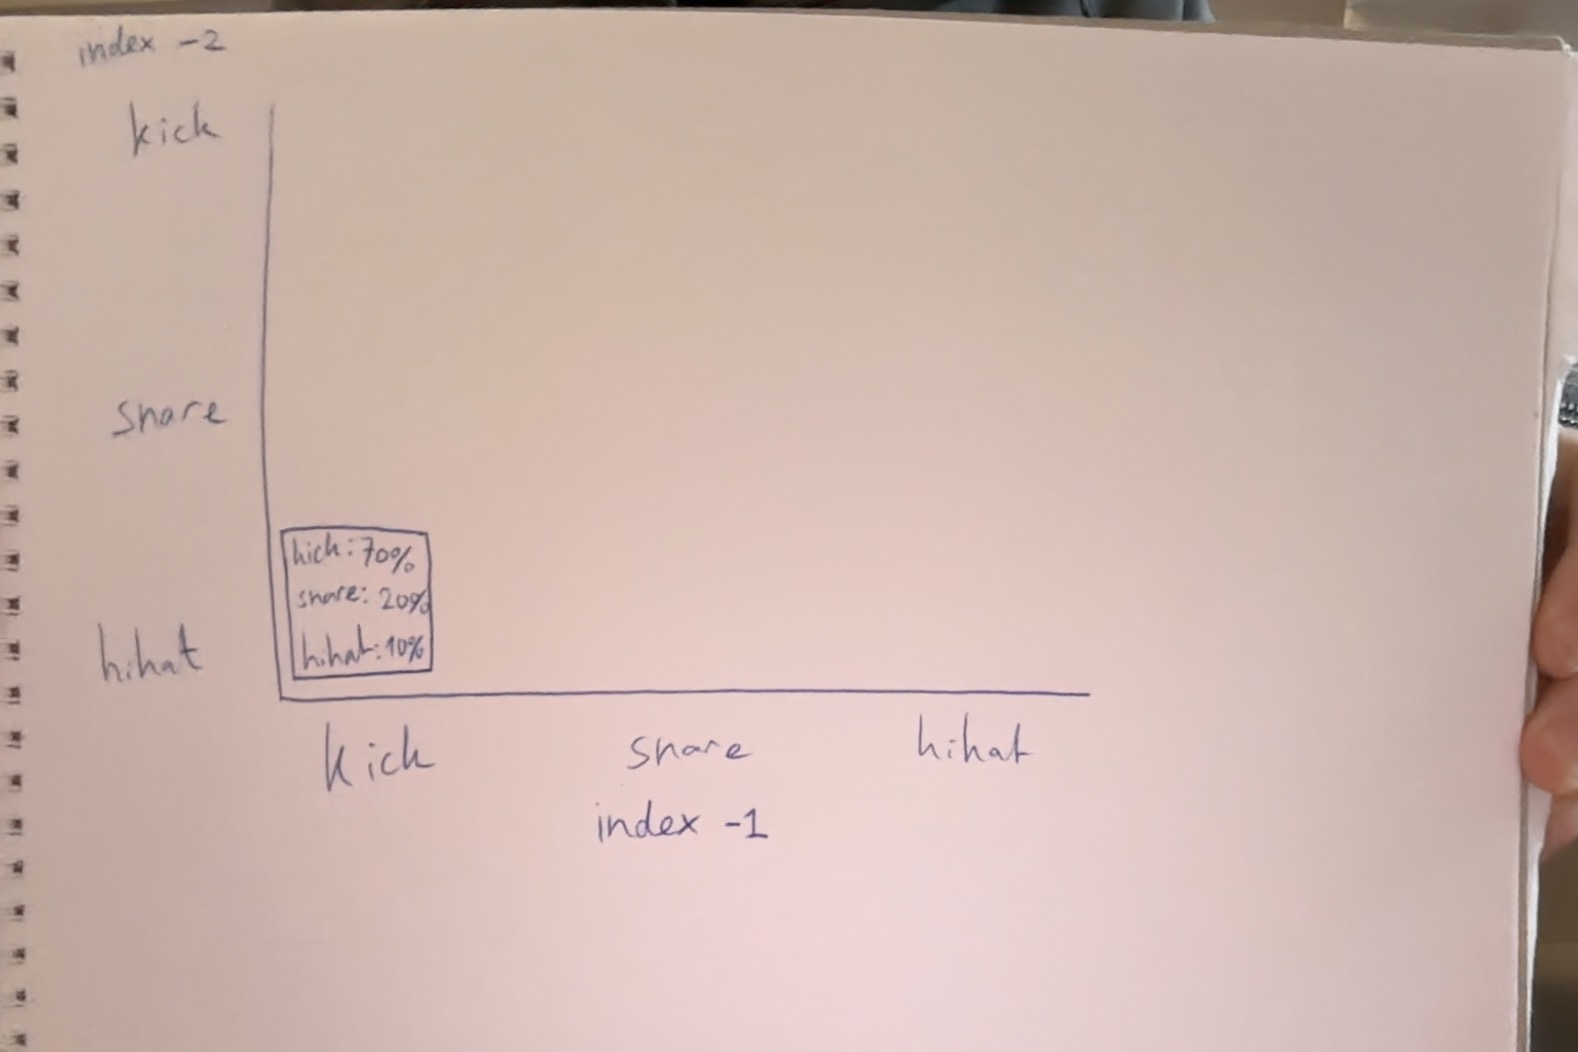 index -2
kick
snare
kick: 70%
snare: 20%
hihat: 10%
hihat
kick snare hihat
index -1